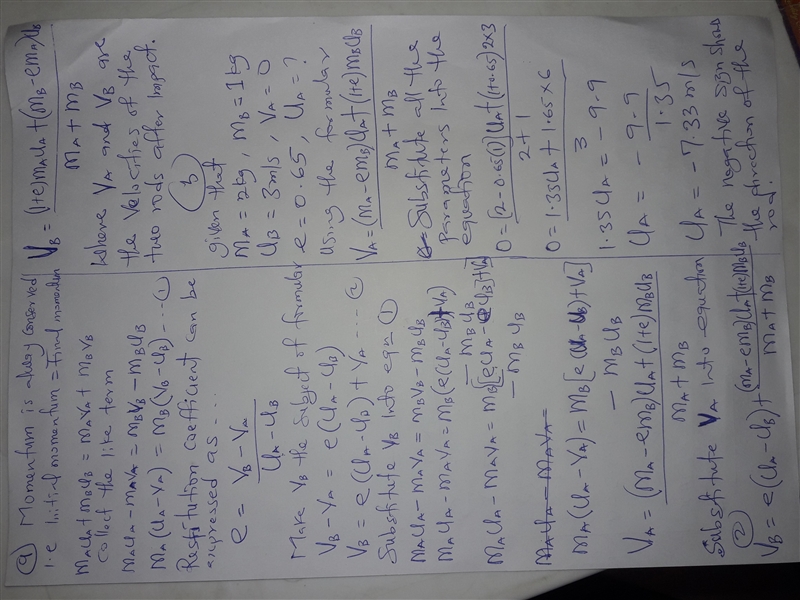 (a) Momentum is always conserved
i.e Initial momentum = Final momentum
MAUA + MBUB = MAVA + MBVB
collect the like term
MAUA - MAVA = MBVB - MBUB
MA(UA - VA) = MB(VB - UB) ---- (1)
Restitution coefficient can be
expressed as ....
e = VB - VA
UA - UB
Make VB the subject of formular
VB - VA = e(UA - UB)
VB = e(UA - UB) + VA ---- (2)
Substitute VB into eqn (1)
MAUA - MAVA = MBVB - MBUB
MAUA - MAVA = MB(e(UA - UB) + VA)
- MBUB
MAUA - MAVA = MB[e(UA - UB) + VA]
- MBUB
MAUA - MAVA =
MA(UA - VA) = MB[e(UA - UB) + VA]
- MBUB
VA = (MA - eMB)UA + (1+e)MBUB
MA + MB
Substitute VA into equation
(2)
VB = e(UA - UB) + (MA - eMB)UA + (1+e)MBUB
MA + MB
VB = (1+e)MAUA + (MB - eMA)UB
MA + MB
where VA and VB are
the Velocities of the
two rods after impact.
(b)
given that
MA = 2kg, MB = 1kg
UB = 3m/s, VA = 0
e = 0.65, UA = ?
Using the formular
VA = (MA - eMB)UA + (1+e)MBUB
MA + MB
Substitute all the
Parameters into the
equation
0 = [2 - 0.65(1)]UA + (1+0.65)2x3
2 + 1
0 = 1.35UA + 1.65 x 6
3
1.35UA = - 9.9
UA = - 9.9
1.35
UA = - 7.33 m/s
The negative sign show
the direction of the
rod.